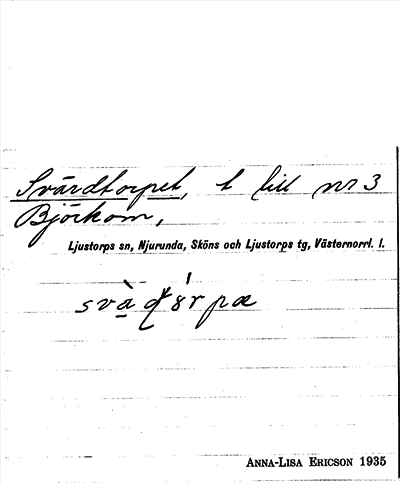 Svärdtorpet, t till nr 3
Björkom,
Ljustorps sn, Njurunda, Sköns och Ljustorps tg, Västernorrl. l.
ANNA-LISA ERICSON 1935